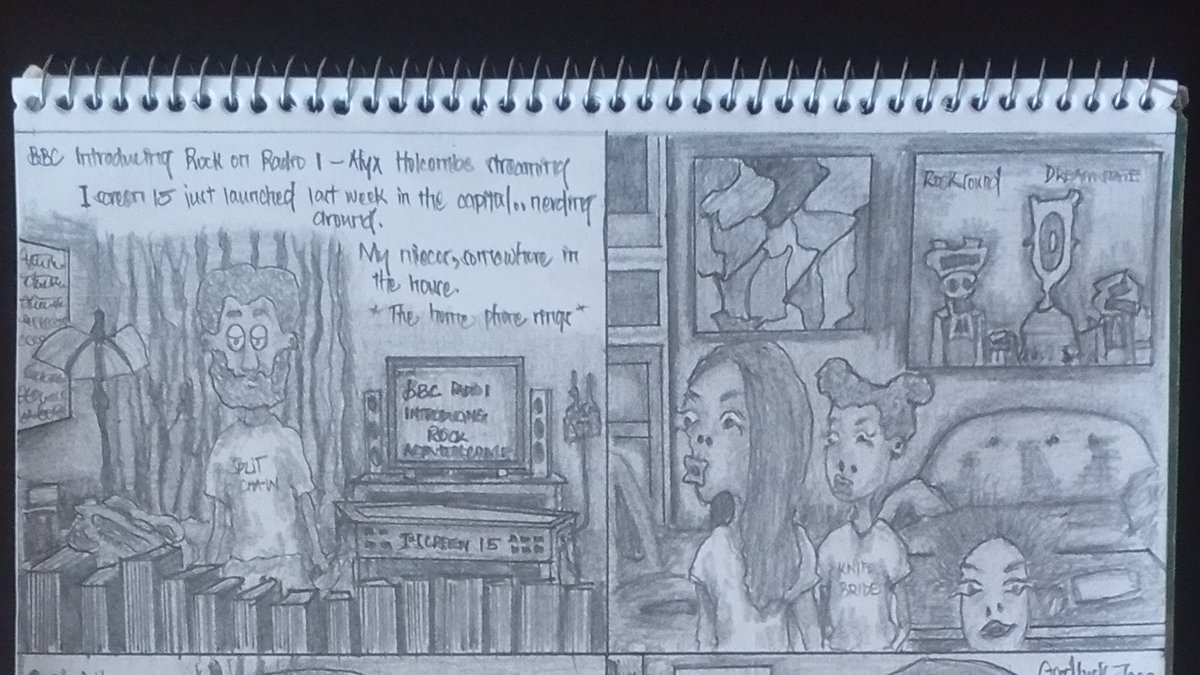 BBC Introducing Rock on Radio 1 - Alyx Holcombe streaming
I screen 15 just launched last week in the capital.. nerding
around.
My nieces, somewhere in
the house.
* The home phone rings *
SPLIT
CHAIN
BBC RADIO 1
INTRODUCING
ROCK
I-SCREEN 15
Rock sound
DREAM STATE
KNIFE
BRIDE